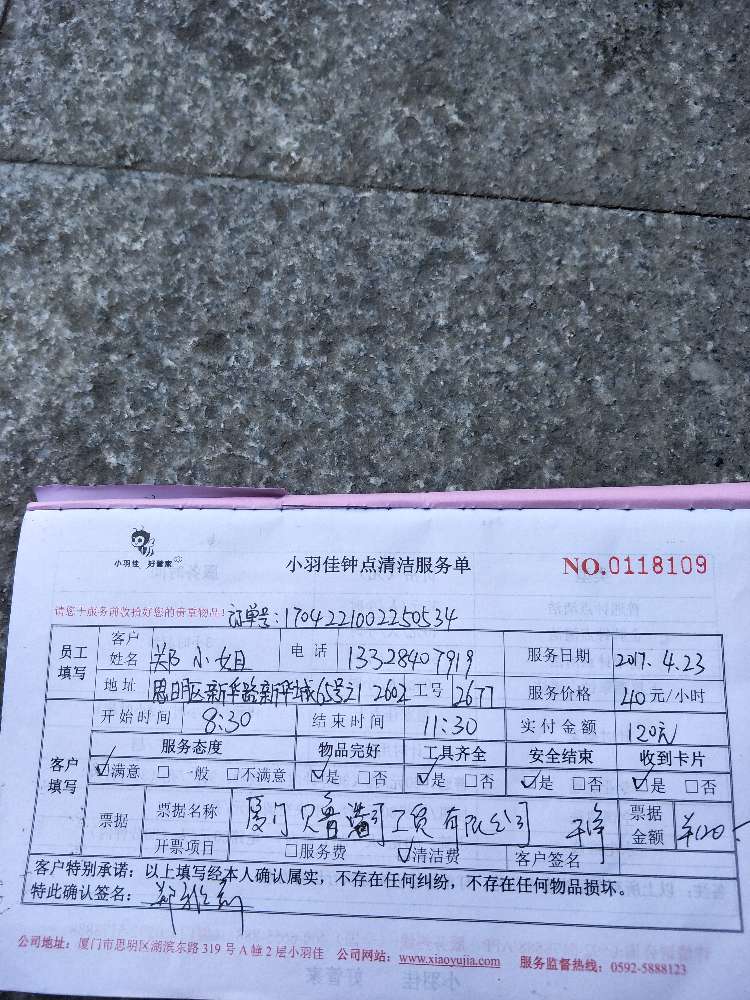 小羽佳 好管家
小羽佳钟点清洁服务单
NO.0118109
请您于服务前收拾好您的贵重物品!
订单号:1704221002250534
员工填写 客户姓名 郑小姐 电话 13328407919 服务日期 2017.4.23
地址 思明区新华路新华城65号21 2602 工号 2677 服务价格 40元/小时
客户填写 开始时间 8:30 结束时间 11:30 实付金额 120元
服务态度 物品完好 工具齐全 安全结束 收到卡片
☑满意 □一般 □不满意 ☑是 □否 ☑是 □否 ☑是 □否 ☑是 □否
票据 票据名称 厦门贝鲁 工贸有限公司 票据金额
开票项目 □服务费 ☑清洁费 客户签名
客户特别承诺:以上填写经本人确认属实,不存在任何纠纷,不存在任何物品损坏。
特此确认签名:
公司地址:厦门市思明区湖滨东路319号A幢2层小羽佳 公司网站:www.xiaoyujia.com 服务监督热线:0592-5888123